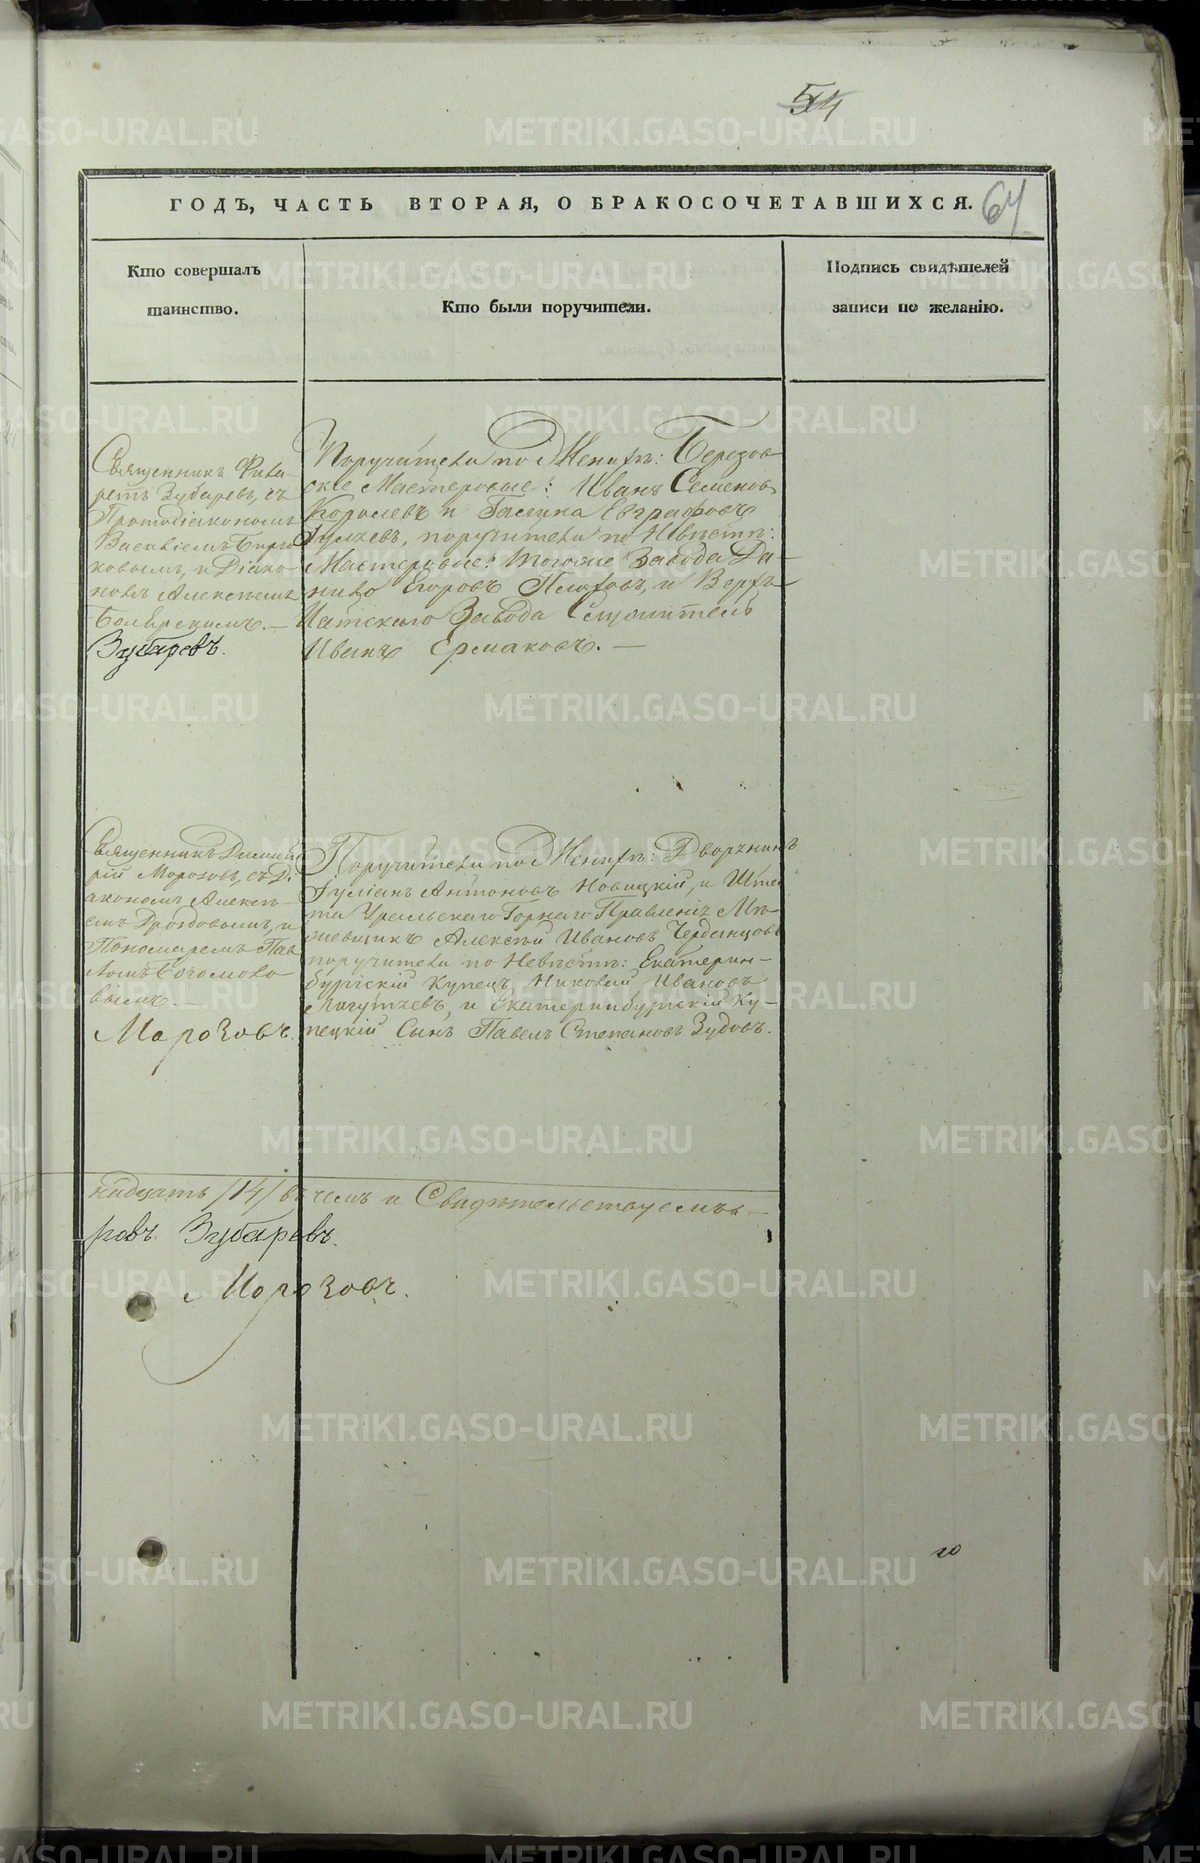 54
64
ГОДЪ, ЧАСТЬ ВТОРАЯ, О БРАКОСОЧЕТАВШИХСЯ.
Кто совершалъ
таинство.
Кто были поручители.
Подпись свидѣтелей
записи по желанію.
Священникъ Фила
ретъ Зубаревъ, съ
Протодіакономъ
Василіемъ
ковымъ, и Діако-
номъ Алексѣемъ
Зубаревъ.
Поручители по Женихѣ: Березов-
скіе Мастеровые: Иванъ Семеновъ
Королевъ и Евграфовъ
поручители по Невѣстѣ:
Мастеровые: тогоже Завода Да-
нило Егоровъ и Верхъ-
Исетскаго Завода Служитель
Иванъ Ермаковъ. —
Священникъ Димит
рій Морозовъ, съ Ді
акономъ Алексѣ-
емъ Дроздовымъ, и
Пономаремъ Пав
ломъ Богомоло-
вымъ. —
Морозовъ.
Поручители по Женихѣ: Дворянинъ
Іуліанъ Антоновъ Новицкій, и Шта
та Уральскаго Горнаго Правленія Ме-
жевщикъ Алексѣй Ивановъ Черданцовъ
поручители по Невѣстѣ: Екатерин-
бургскій Купецъ Николай Ивановъ
и Екатеринбургскій Ку-
пецкій Сынъ Павелъ Степановъ Зудовъ.
надцать /14/ въ чемъ и Свидѣтельствуемъ. —
ровъ Зубаревъ.
Морозовъ.
METRIKI.GASO-URAL.RU